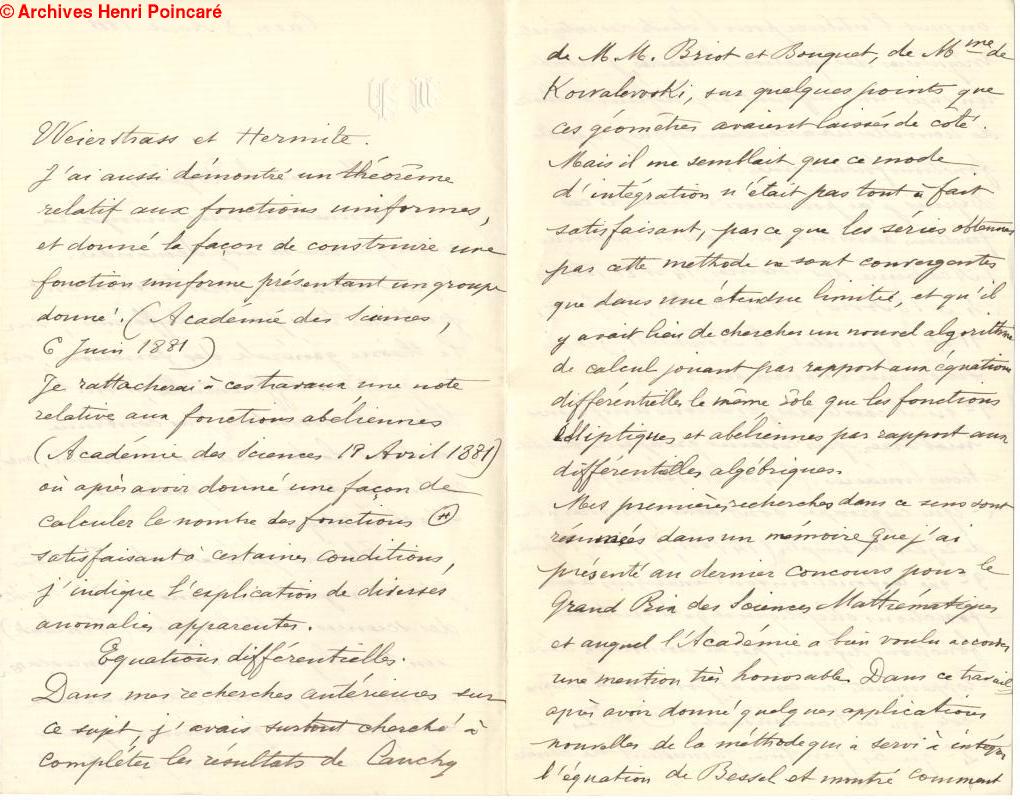 © Archives Henri Poincaré
Weierstrass et Hermite.
J'ai aussi démontré un théorème
relatif aux fonctions uniformes,
et donné la façon de construire une
fonction uniforme présentant un groupe
donné. (Académie des Sciences,
6 Juin 1881)
Je rattacherai à ces travaux une note
relative aux fonctions abéliennes
(Académie des Sciences 18 Avril 1881)
où après avoir donné une façon de
calculer le nombre des fonctions Ⓗ
satisfaisant à certaines conditions,
j'indique l'explication de diverses
anomalies apparentes.
Equations différentielles.
Dans mes recherches antérieures sur
ce sujet, j'avais surtout cherché à
compléter les résultats de Cauchy
de M.M. Briot et Bouquet, de Mme de
Kowalevski, sur quelques points que
ces géomètres avaient laissés de côté.
Mais il me semblait que ce mode
d'intégration n'était pas tout à fait
satisfaisant, par ce que les séries obtenues
par cette méthode ne sont convergentes
que dans une étendue limitée, et qu'il
y avait lieu de chercher un nouvel algorithme
de calcul jouant par rapport aux équations
différentielles le même rôle que les fonctions
elliptiques et abéliennes par rapport aux
différentielles algébriques.
Mes premières recherches dans ce sens sont
résumées dans un mémoire que j'ai
présenté au dernier concours pour le
Grand Prix des Sciences Mathématiques
et auquel l'Académie a bien voulu accorder
une mention très honorable. Dans ce travail,
après avoir donné quelques applications
nouvelles de la méthode qui a servi à intégrer
l'équation de Bessel et montré comment